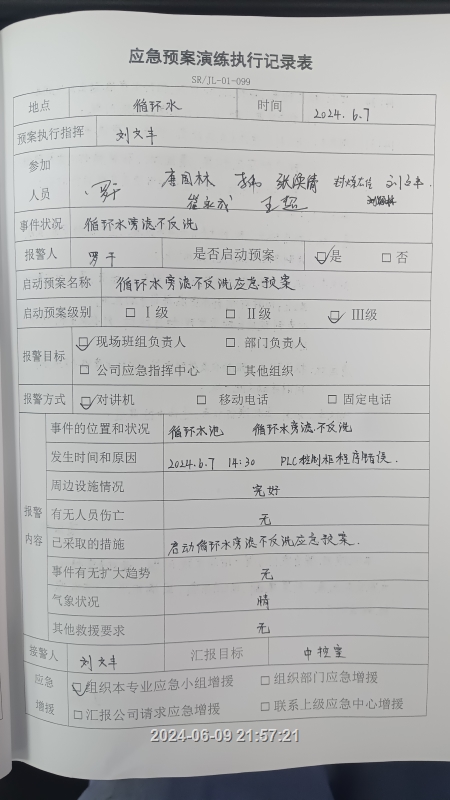 应急预案演练执行记录表
SR/JL-01-099
地点 循环水 时间 2024.6.7
预案执行指挥 刘文丰
参加人员 罗干 唐国林 李伟 张焕清 刘文丰
崔永成 王超
事件状况 循环水旁滤不反洗
报警人 罗干 是否启动预案 ☑是 □否
启动预案名称 循环水旁滤不反洗应急预案
启动预案级别 □Ⅰ级 □Ⅱ级 ☑Ⅲ级
报警目标 ☑现场班组负责人 □部门负责人
□公司应急指挥中心 □其他组织
报警方式 ☑对讲机 □移动电话 □固定电话
报警内容 事件的位置和状况 循环水池 循环水旁滤不反洗
发生时间和原因 2024.6.7 14:30 PLC控制柜程序错误.
周边设施情况 完好
有无人员伤亡 无
已采取的措施 启动循环水旁滤不反洗应急预案.
事件有无扩大趋势 无
气象状况 晴
其他救援要求 无
接警人 刘文丰 汇报目标 中控室
应急增援 ☑组织本专业应急小组增援 □组织部门应急增援
□汇报公司请求应急增援 □联系上级应急中心增援
2024-06-09 21:57:21